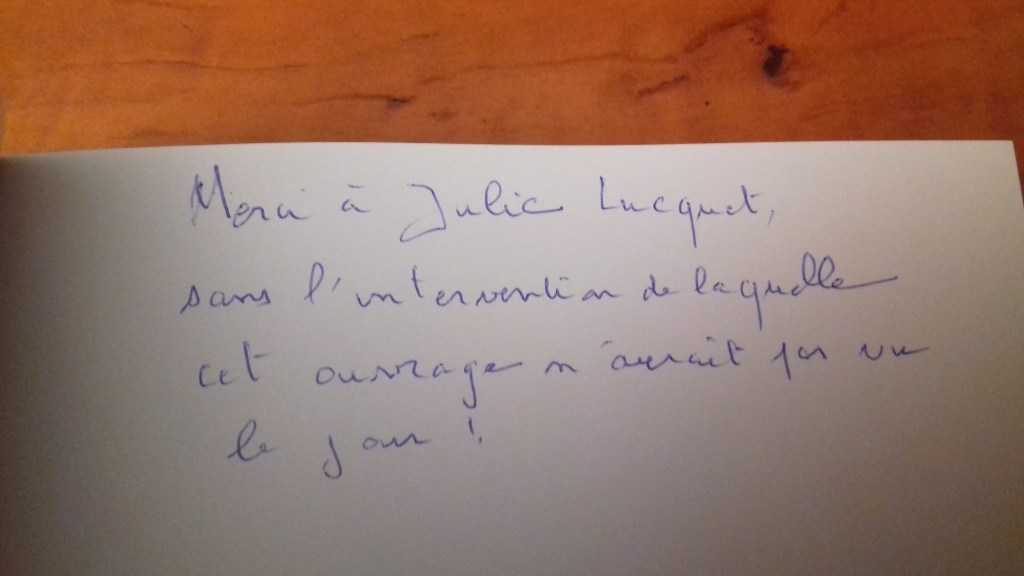 Merci à Julie Lucquet,
sans l'intervention de laquelle
cet ouvrage n'aurait pas vu
le jour !